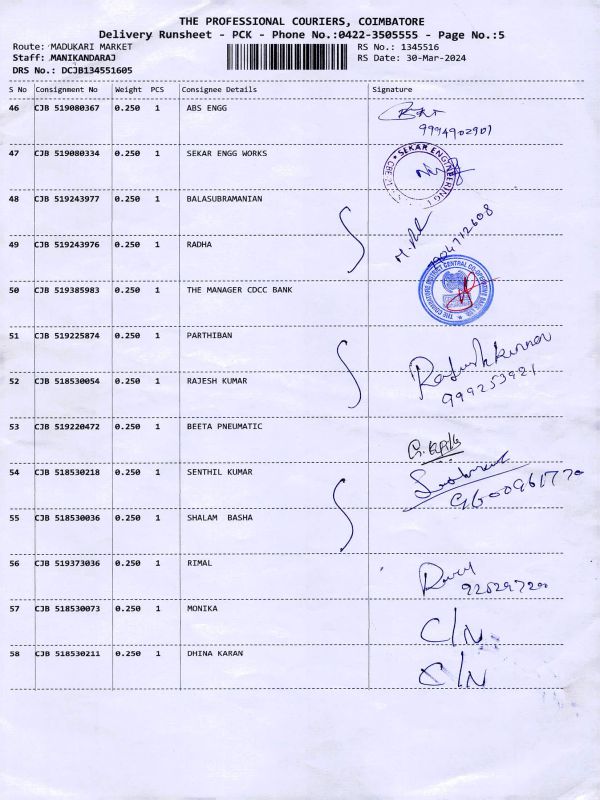 THE PROFESSIONAL COURIERS, COIMBATORE
Delivery Runsheet - PCK - Phone No.:0422-3505555 - Page No.:5
Route: MADUKARI MARKET RS No.: 1345516
Staff: MANIKANDARAJ RS Date: 30-Mar-2024
DRS No.: DCJB134551605
S No Consignment No Weight PCS Consignee Details Signature
46 CJB 519080367 0.250 1 ABS ENGG
9994902901
47 CJB 519080334 0.250 1 SEKAR ENGG WORKS
SEKAR ENGINEERING
48 CJB 519243977 0.250 1 BALASUBRAMANIAN
49 CJB 519243976 0.250 1 RADHA
50 CJB 519385983 0.250 1 THE MANAGER CDCC BANK
51 CJB 519225874 0.250 1 PARTHIBAN
52 CJB 518530054 0.250 1 RAJESH KUMAR
999253921
53 CJB 519220472 0.250 1 BEETA PNEUMATIC
54 CJB 518530218 0.250 1 SENTHIL KUMAR
55 CJB 518530036 0.250 1 SHALAM BASHA
56 CJB 519373036 0.250 1 RIMAL
57 CJB 518530073 0.250 1 MONIKA
C/N
58 CJB 518530211 0.250 1 DHINA KARAN
C/N